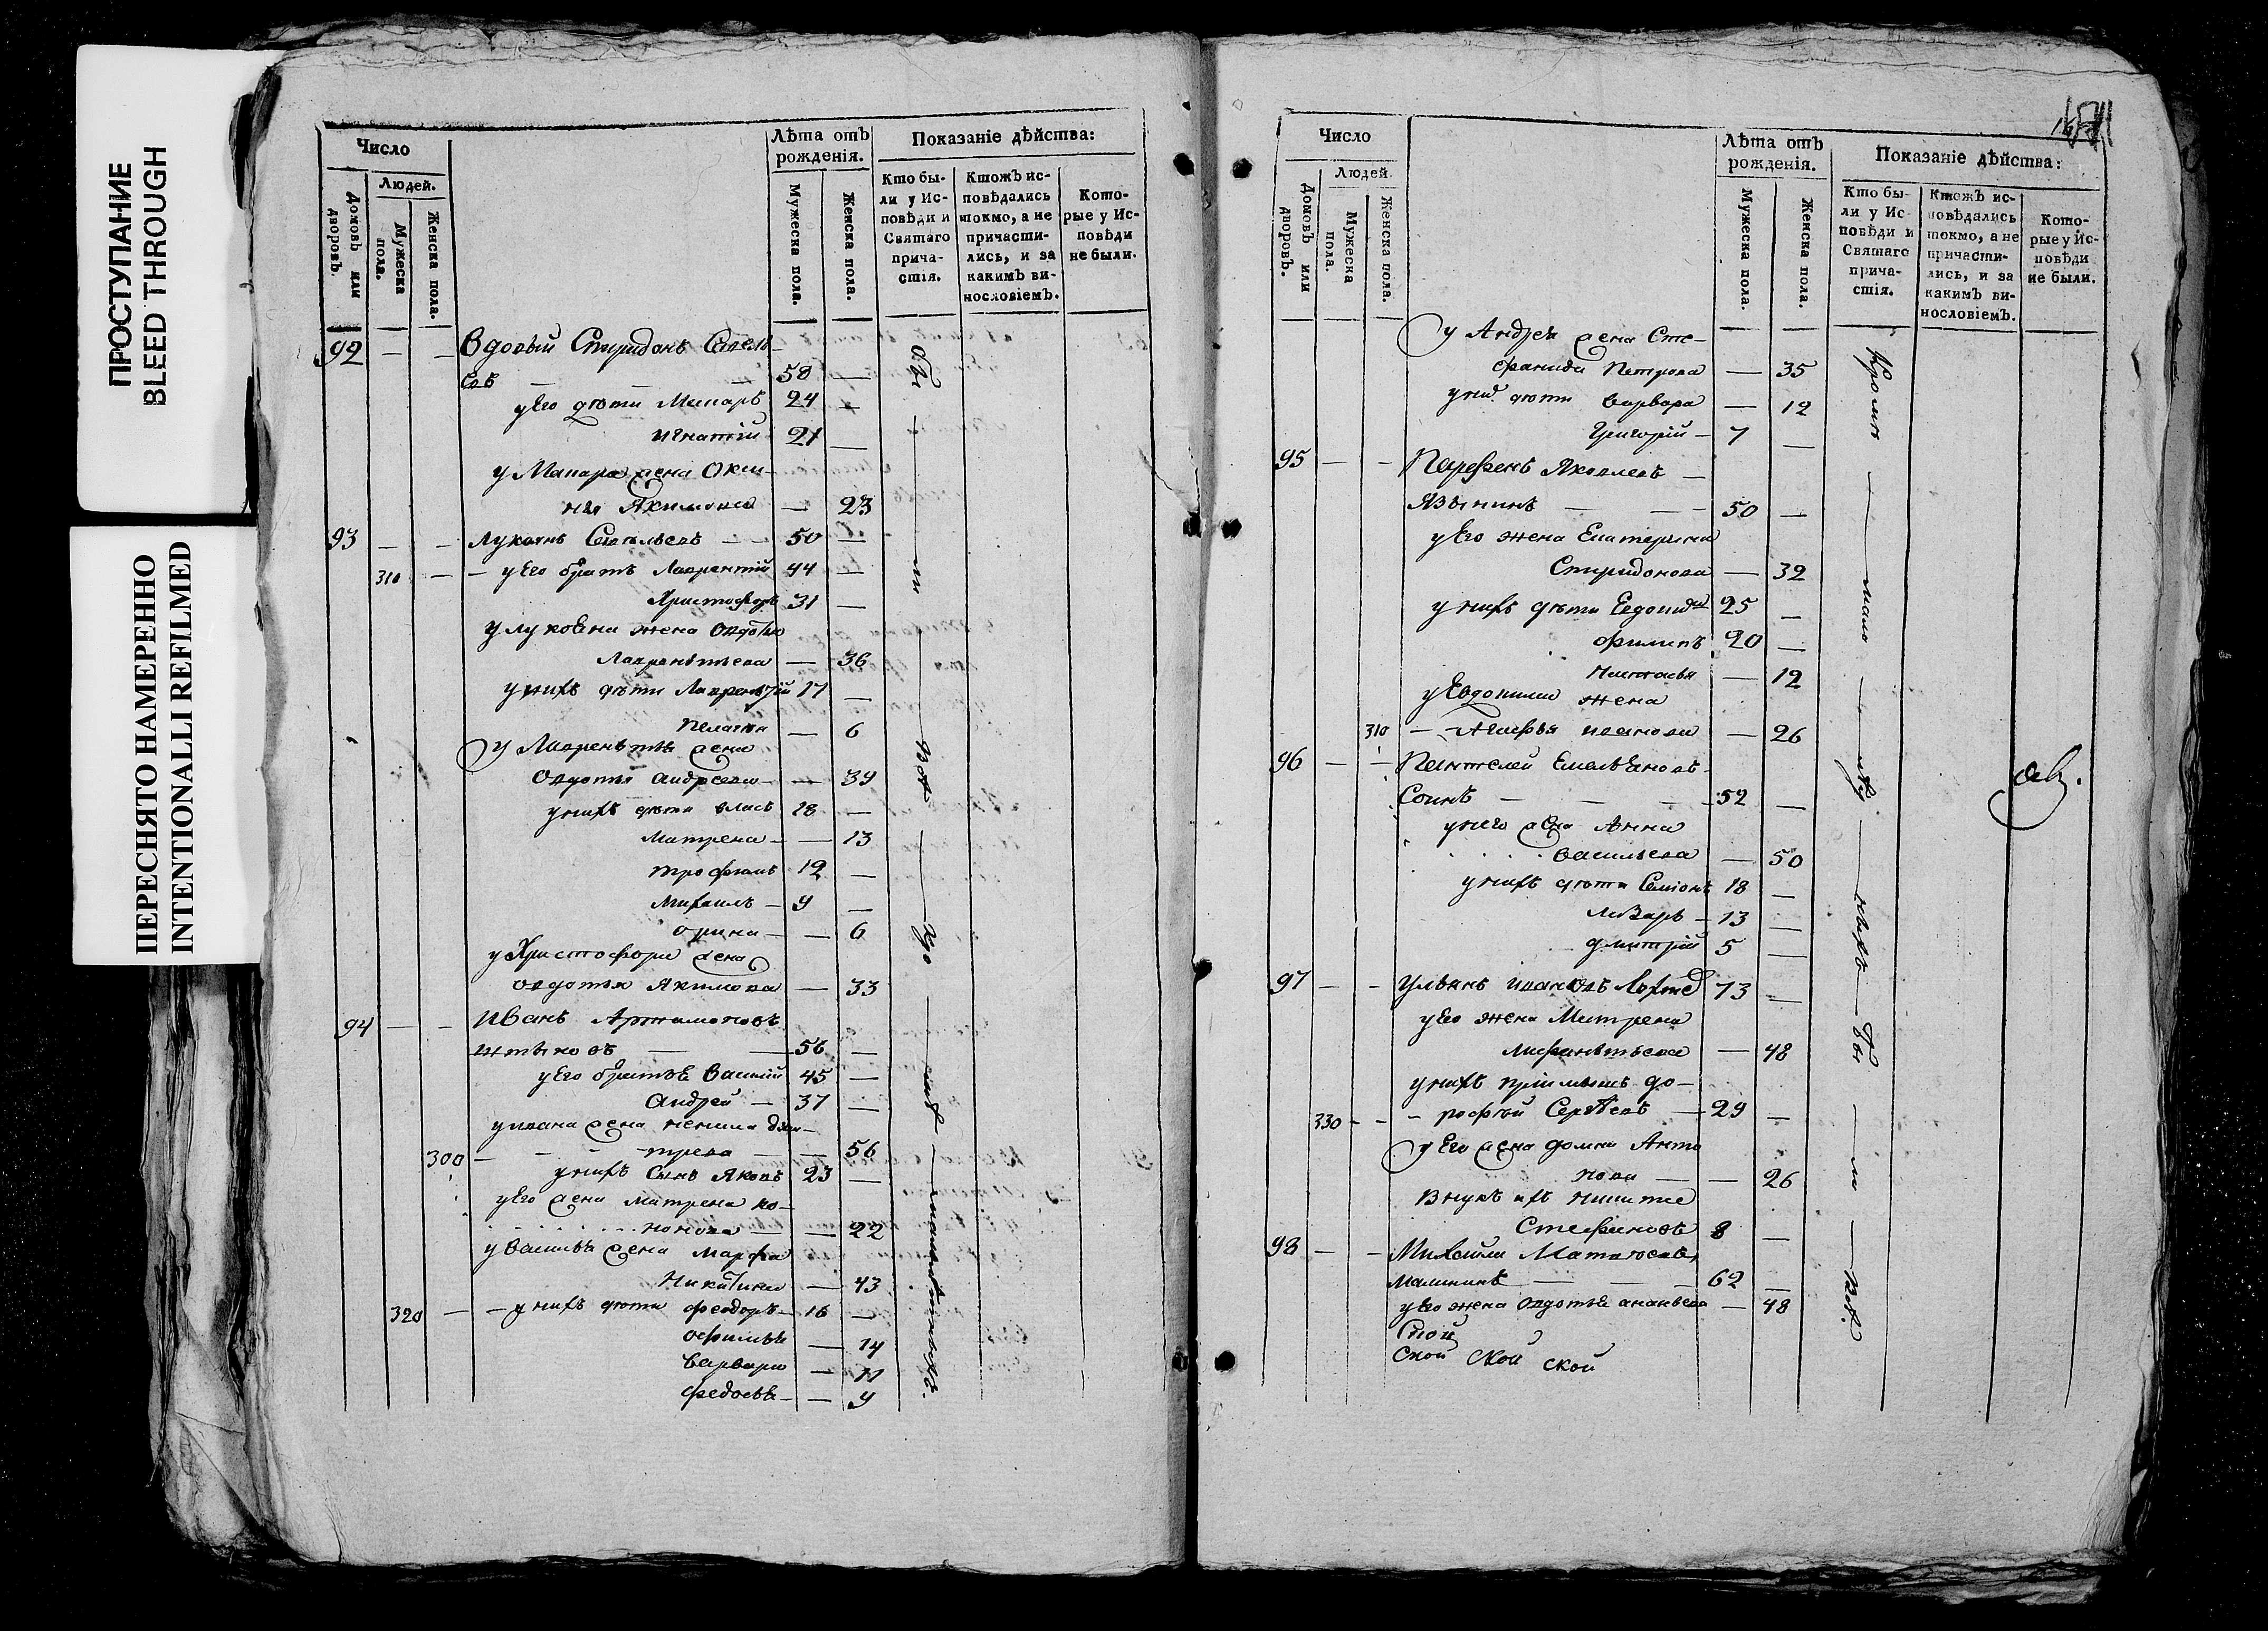 ПРОСТУПАНИЕ
BLEED THROUGH
ПЕРЕСНЯТО НАМЕРЕННО
INTENTIONALLI REFILMED
Число
Людей.
Домовъ или дворовъ.
Мужеска пола.
Женска пола.
Лѣта отъ рожденія.
Мужеска пола.
Женска пола.
Показаніе дѣйства:
Кто бы-
ли у Ис-
повѣди и
Святаго
прича-
стія.
Ктожъ ис-
повѣдались
токмо, а не
причасти-
лись, и за
какимъ ви-
нословіемъ.
Кото-
рые у Ис-
повѣди
не были.
92 — — Вдовый Спиридонъ Савель-
евъ — — 58 —
у Его дѣти Макаръ 24 —
игнатій 21 —
у Макара жена Окси-
нія Якимова — 23
93 — — Лукіянъ Савельевъ — 50 —
310 — — у Его братъ Лаврентій 44 —
Христофоръ 31 —
у лукьяна жена Овдотья
Лаврентьева — 36
у нихъ дѣти Лаврентій 17 —
пелагия — 6
у Лаврентья жена
Овдотья андреева — 39
у нихъ дѣти власъ 18 —
Матрена — 13
трофимъ 12 —
михаилъ — 9 —
орина — 6
у Христофора жена
овдотья Якимова — 33
94 — — иванъ Артамоновъ
— 56 —
у Его братья Василій 45 —
андрей — 37 —
у ивана жена ненила дми-
300 — — — трева — 56
у нихъ сынъ Яковъ 23 —
у Его жена матрена ко-
нонова — 22
у василья жена марфа
Никитина — 43
320 — — у нихъ дѣти феодоръ — 16 —
офимья — 14
варвара — 11
федосья — 9
Число
Людей.
Домовъ или дворовъ.
Мужеска пола.
Женска пола.
Лѣта отъ рожденія.
Мужеска пола.
Женска пола.
Показаніе дѣйства:
Кто бы-
ли у Ис-
повѣди и
Святаго
прича-
стія.
Ктожъ ис-
повѣдались
токмо, а не
причасти-
лись, и за
какимъ ви-
нословіемъ.
Кото-
рые у Ис-
повѣди
не были.
у Андрея жена Сте-
фанида Петрова — 35
у них дѣти варвара — 12
Григорій — 7 —
95 — — Парфенъ Яковлевъ —
Язынинъ — — 50 —
у Его жена Екатерина
Спиридонова — 32
у нихъ дѣти Евдокимъ 25 —
филипъ 20 —
Наталья — 12
у Евдокима жена
310 — Агафья иванова — 26
96 — — Пантелей Емельяновъ
Сонинъ — — 52 —
у него жена Анна
васильева — 50
у нихъ дѣти Семіонъ 18 —
лазарь — 13 —
дмитрій 5 —
97 — — Ульянъ ивановъ 73 —
у Его жена Матрена
— 48
у нихъ пріимышъ до-
330 — — — рофѣй Сергѣевъ — 29 —
у Его жена домна Анто
нова — — 26
внукъ ихъ никита
Стефановъ 8 —
98 — — Михайла Матвѣевъ
Малининъ — — 62 —
у Его жена овдотья ананьева — 48
Скои
Скои Скои скои
Кромѣ — мало — лѣт — нихъ — бы — ли — всѣ.